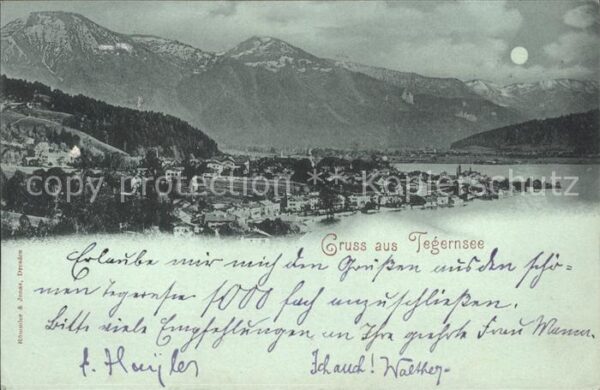 * copy protection watermark * bartko-reher-kunst
Gruss aus Tegernsee
Erlaube mir mich den Grüßen aus den schö-
men Tegernsee 1000 fach anzuschließen.
Bitte viele Empfehlungen an Ihre geehrte Frau Mama.
Ich auch! Walther
Römmler & Jonas, Dresden